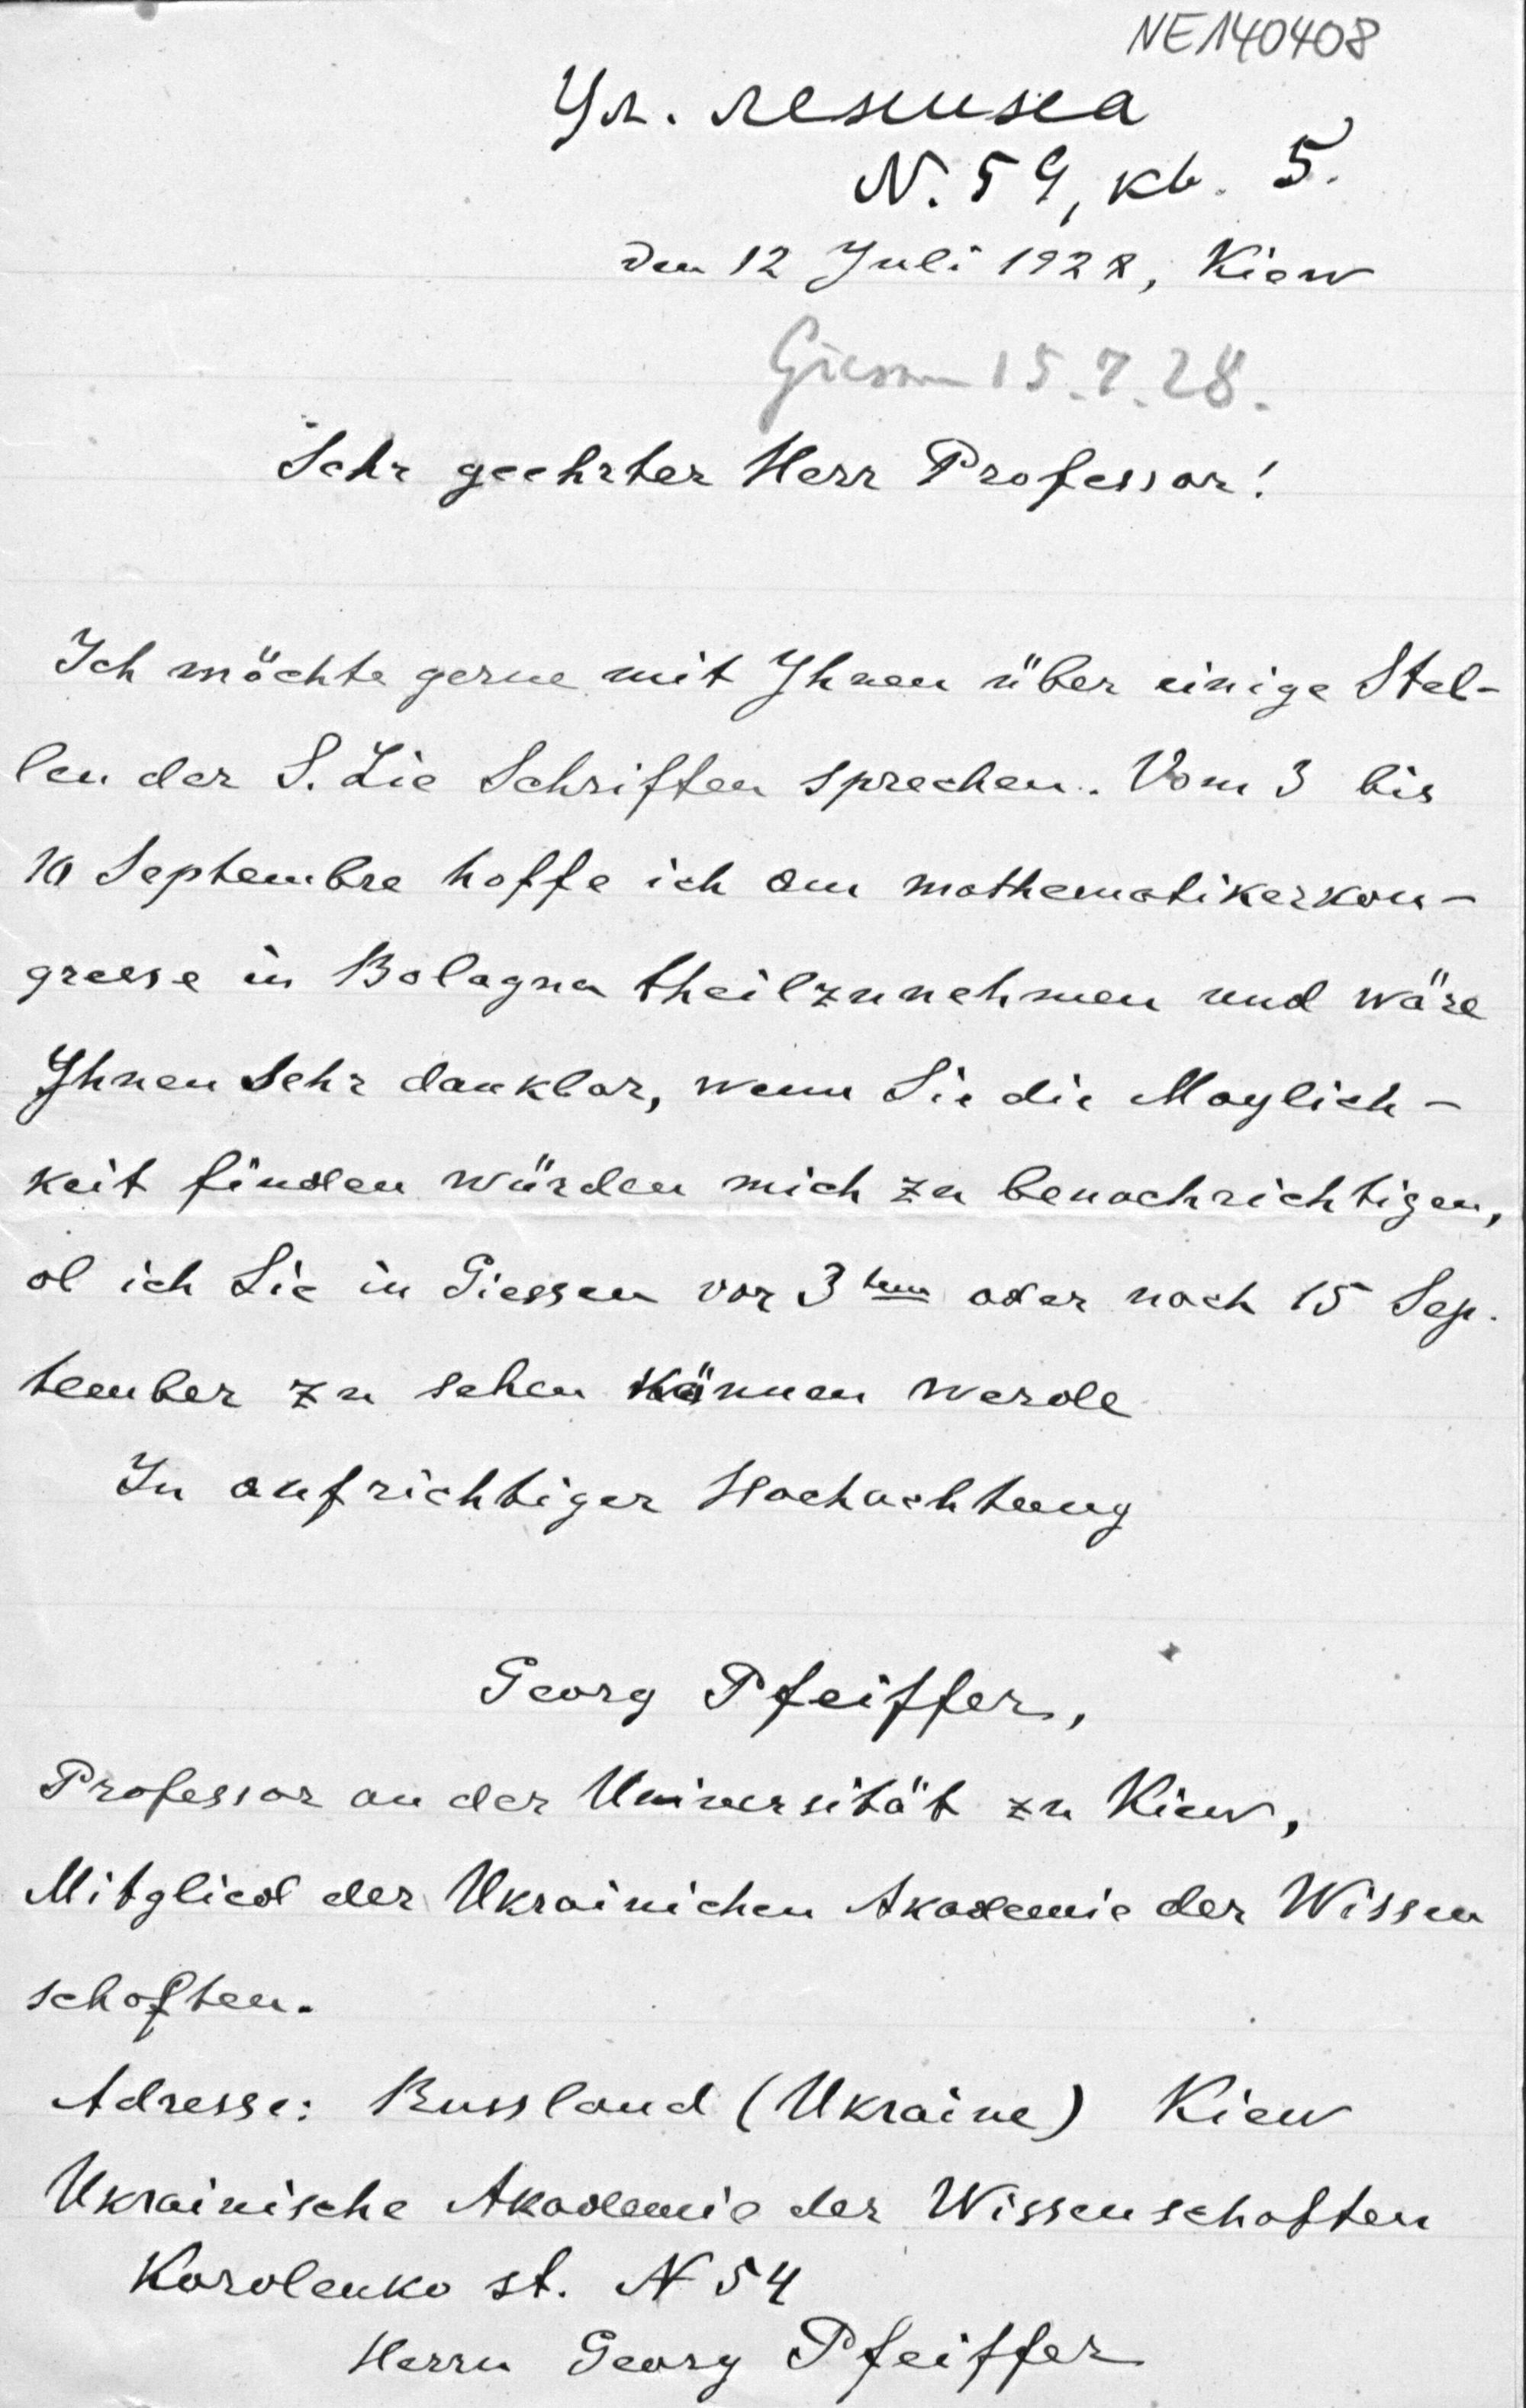 NE140408
Ул. Ленина
N. 59, кв. 5.
den 12 Juli 1928, Kiew
Giessen 15.7.28.
Sehr geehrter Herr Professor!
Ich möchte gerne mit Ihnen über einige Stel-
len der S. Lie Schriften sprechen. Vom 3 bis
10 Septembre hoffe ich am mathematikerkon-
gresse in Bologna theilzunehmen und wäre
Ihnen sehr dankbar, wenn Sie die Moglich-
keit finden würden mich zu benachrichtigen,
ob ich Sie in Giessen vor 3ten oder nach 15 Sep-
tember zu sehen können werde
In aufrichtiger Hochachtung
Georg Pfeiffer,
Professor an der Universität zu Kiew,
Mitglied der Ukrainichen Akademie der Wissen
schaften.
Adresse: Russland (Ukraine) Kiew
Ukrainische Akademie der Wissenschaften
Korolenko st. N 54
Herrn Georg Pfeiffer